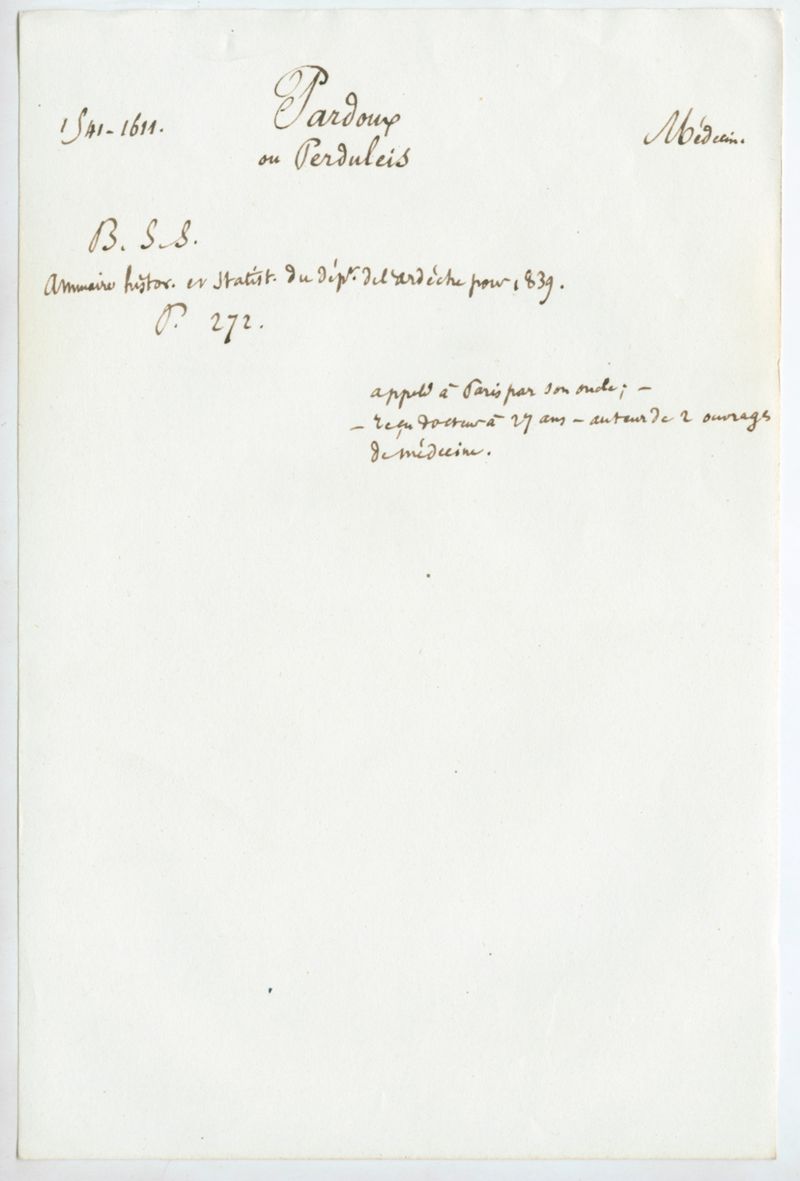 1541-1611.
Pardoux
Médecin.
ou Perduleis
B. S. S.
Annuaire histor. et statist. du dépt. de l'ardèche pour 1839.
P. 272.
appelé à Paris par son oncle; -
- reçu docteur à 27 ans - auteur de 2 ouvrages
de médecine.